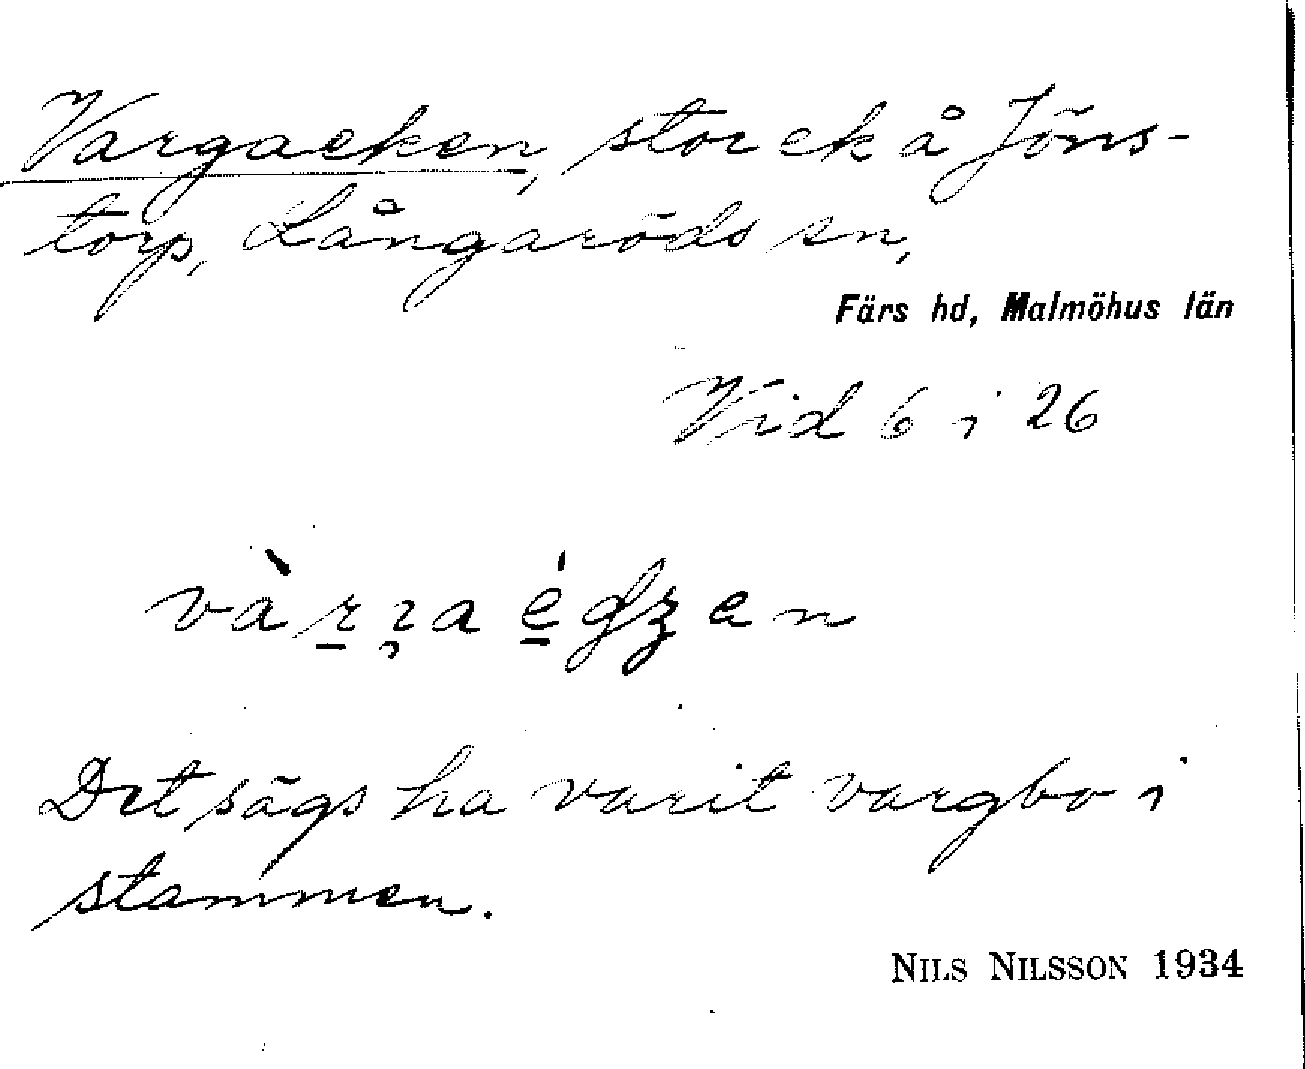 Vargaeken, stor ek å Jöns-
torp, Långaröds sn,
Färs hd, Malmöhus län
Vid 6 i 26
Det sägs ha varit vargbo i
stammen.
NILS NILSSON 1934